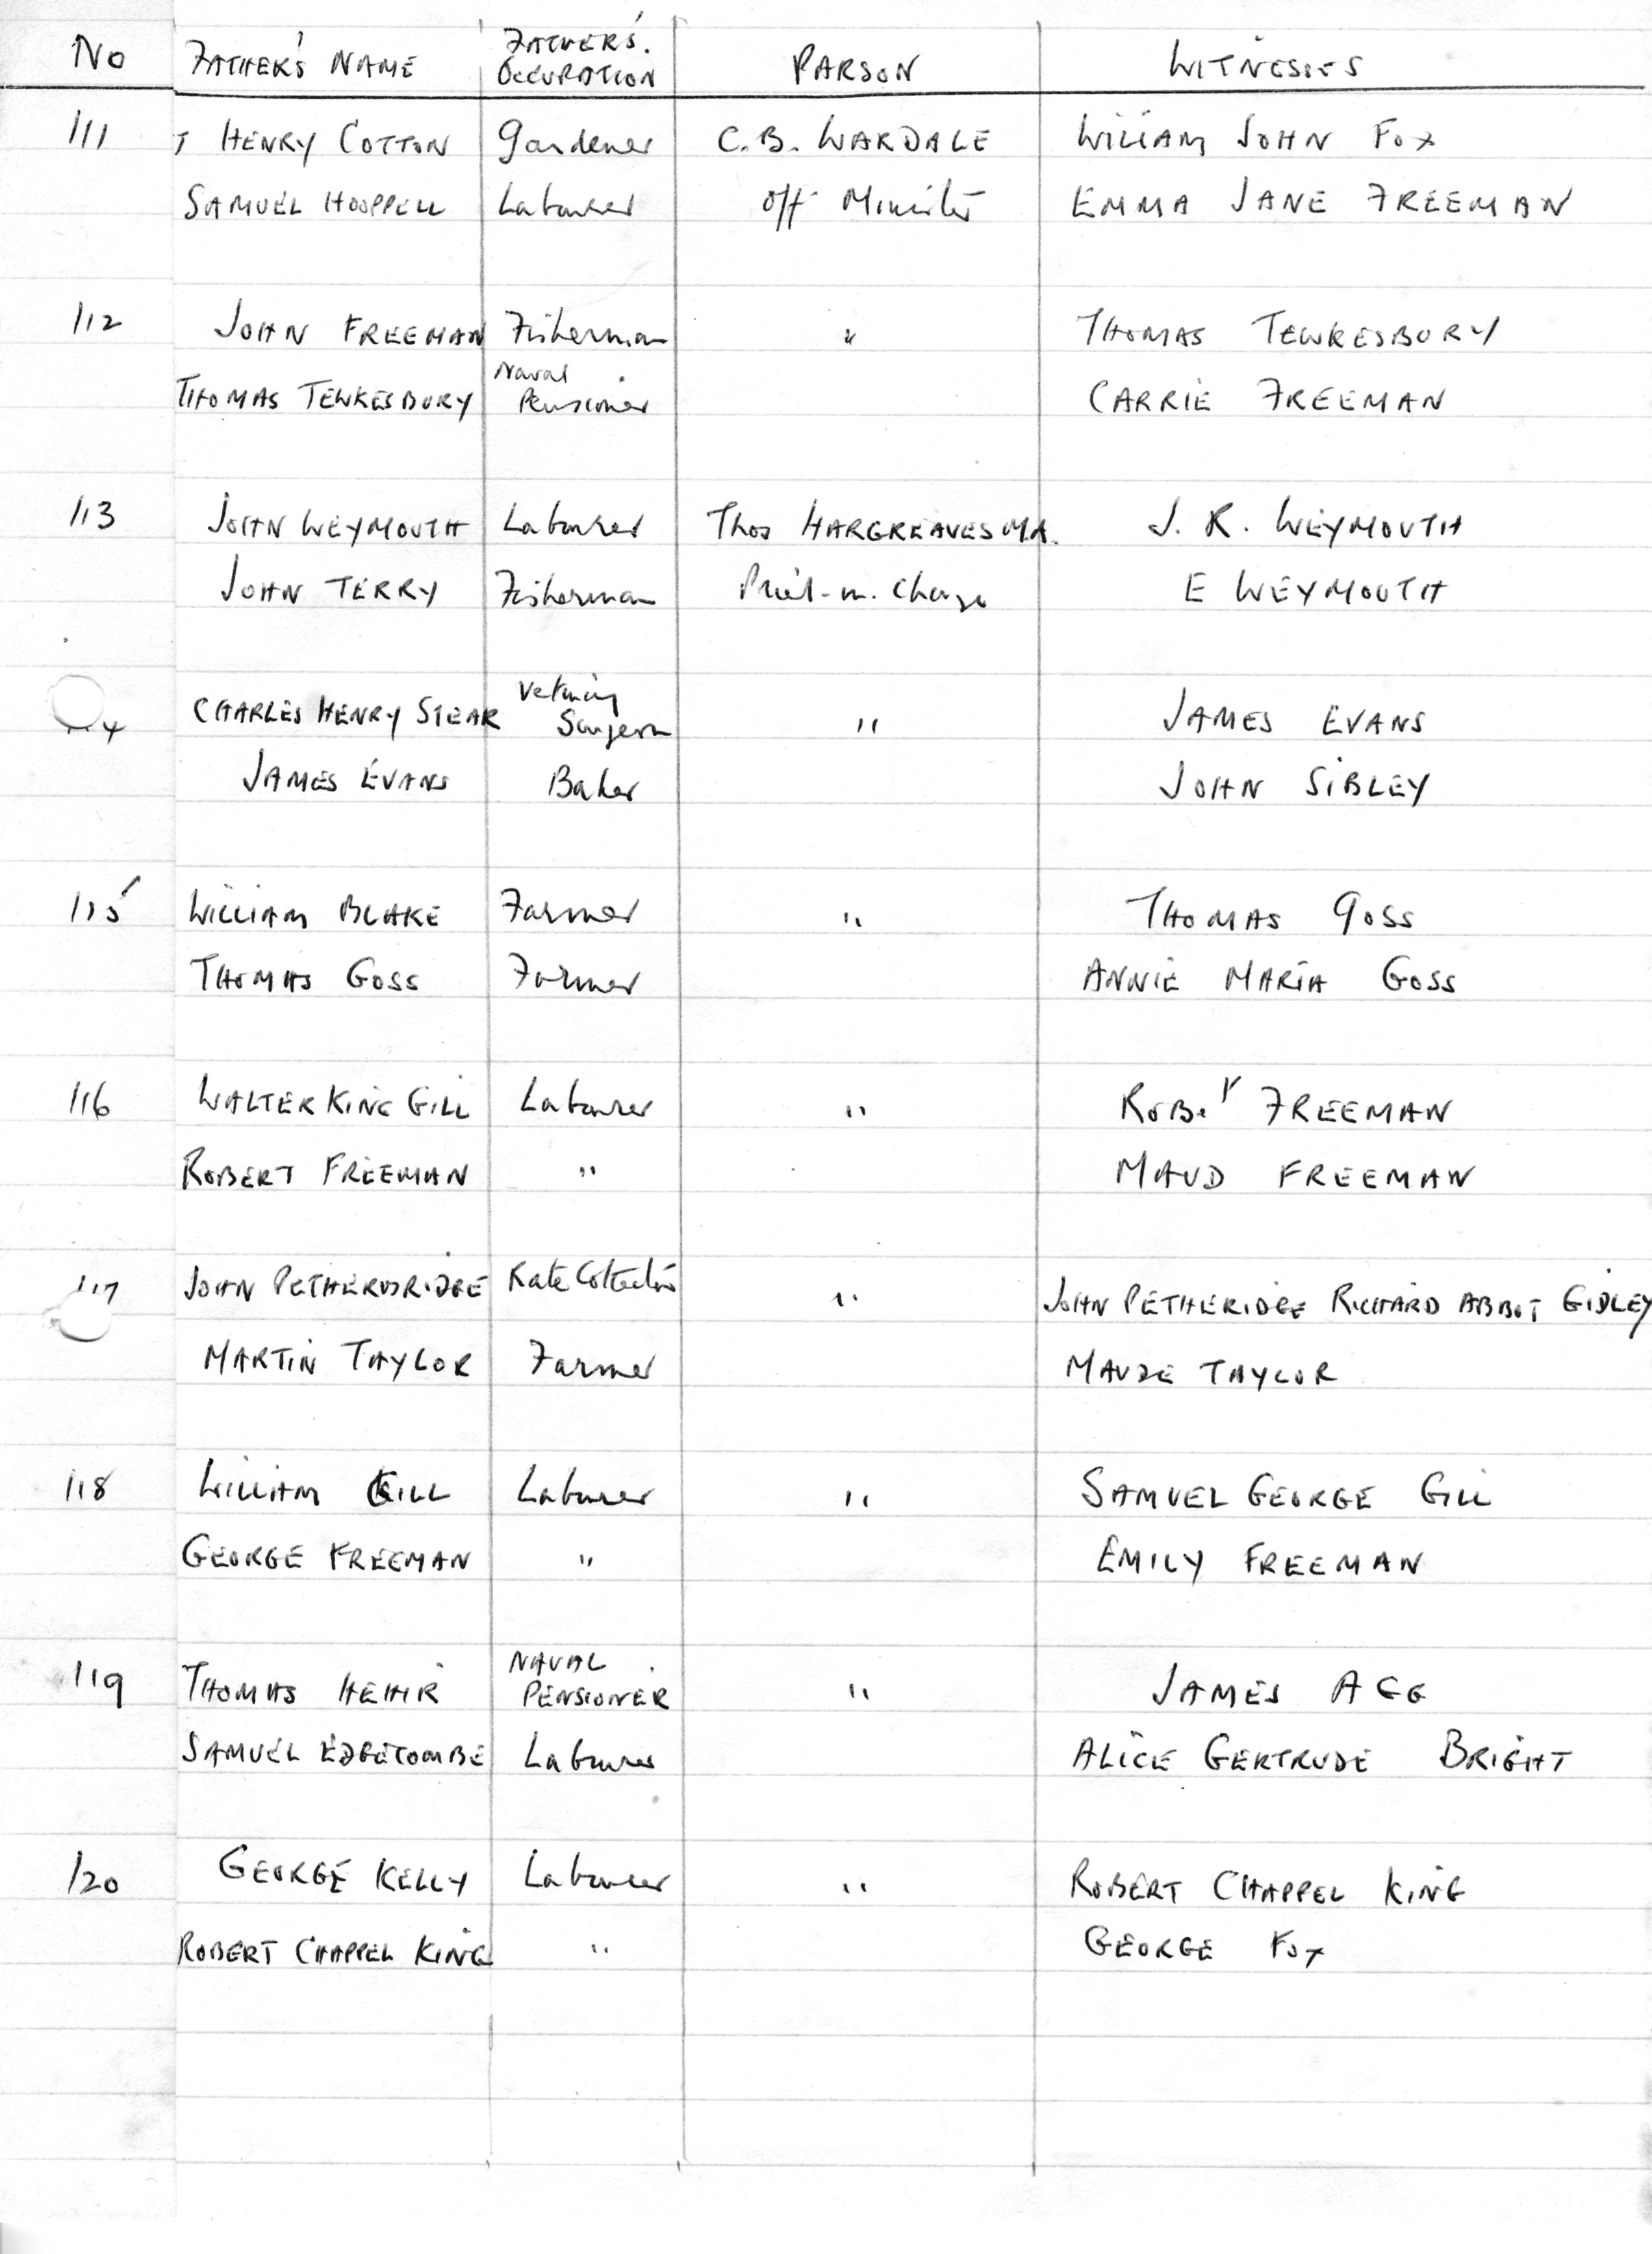 No FATHER'S NAME FATHER'S OCCUPATION PARSON WITNESSES
111 HENRY COTTON Gardener C.B. WARDALE WILLIAM JOHN FOX
SAMUEL HOOPPELL Labourer Off Minister EMMA JANE FREEMAN
112 JOHN FREEMAN Fisherman " THOMAS TEWKESBURY
THOMAS TEWKESBURY Naval Pensioner CARRIE FREEMAN
113 JOHN WEYMOUTH Labourer Thos HARGREAVES M.A. J. R. WEYMOUTH
JOHN TERRY Fisherman Priest-in-Charge E WEYMOUTH
CHARLES HENRY STEAR Surgeon " JAMES EVANS
JAMES EVANS Baker JOHN SIBLEY
115 WILLIAM BLAKE Farmer " THOMAS GOSS
THOMAS GOSS Farmer ANNIE MARIA GOSS
116 WALTER KING GILL Labourer " ROB.T FREEMAN
ROBERT FREEMAN " MAUD FREEMAN
117 JOHN PETHERBRIDGE Rate Collector " JOHN PETHERIDGE RICHARD ABBOT GIDLEY
MARTIN TAYLOR Farmer MAUDE TAYLOR
118 WILLIAM GILL Labourer " SAMUEL GEORGE GILL
GEORGE FREEMAN " EMILY FREEMAN
119 THOMAS NAVAL PENSIONER " JAMES AGG
SAMUEL EDGECOMBE Labourer ALICE GERTRUDE BRIGHT
120 GEORGE KELLY Labourer " ROBERT CHAPPEL KING
ROBERT CHAPPEL KING " GEORGE FOX